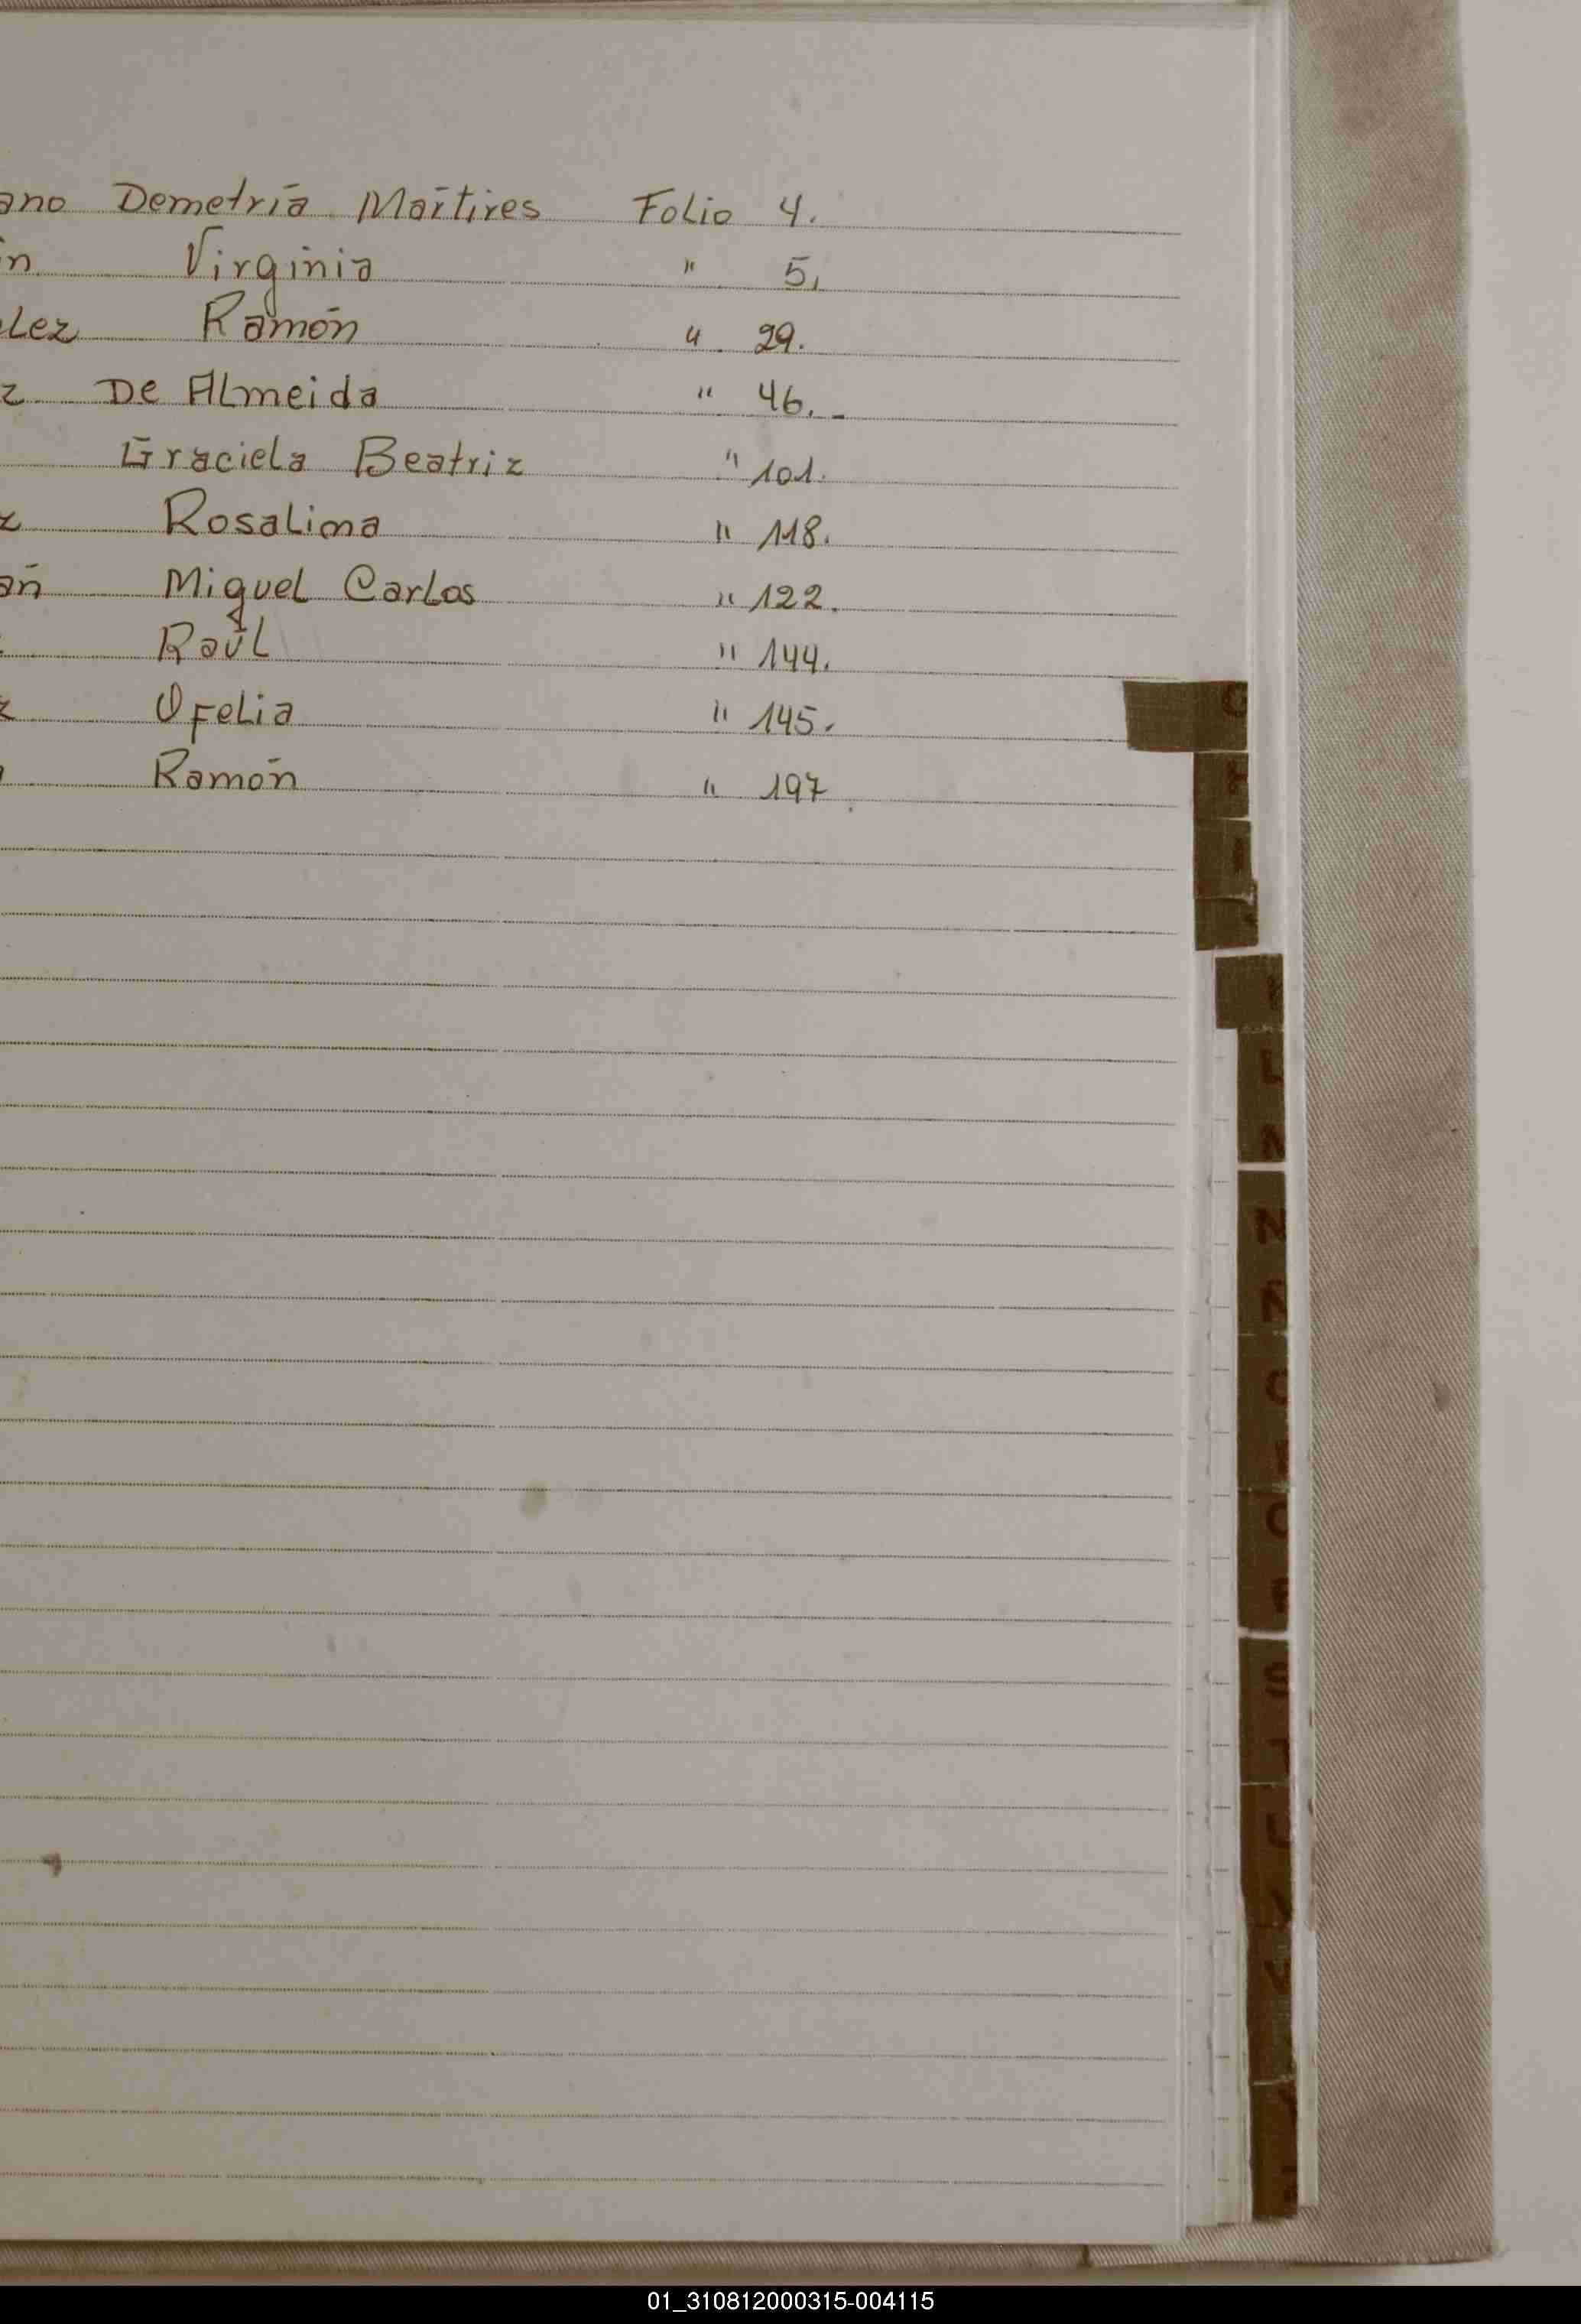 ano Demetria Mártires Folio 4.
ín Virginia " 5.
lez Ramón " 29.
z De Almeida " 46. -
Graciela Beatriz " 101.
z Rosalima " 118.
añ Miguel Carlos " 122.
Raúl " 144.
z Ofelia " 145.
Ramón " 197
L
N
S
01_310812000315-004115